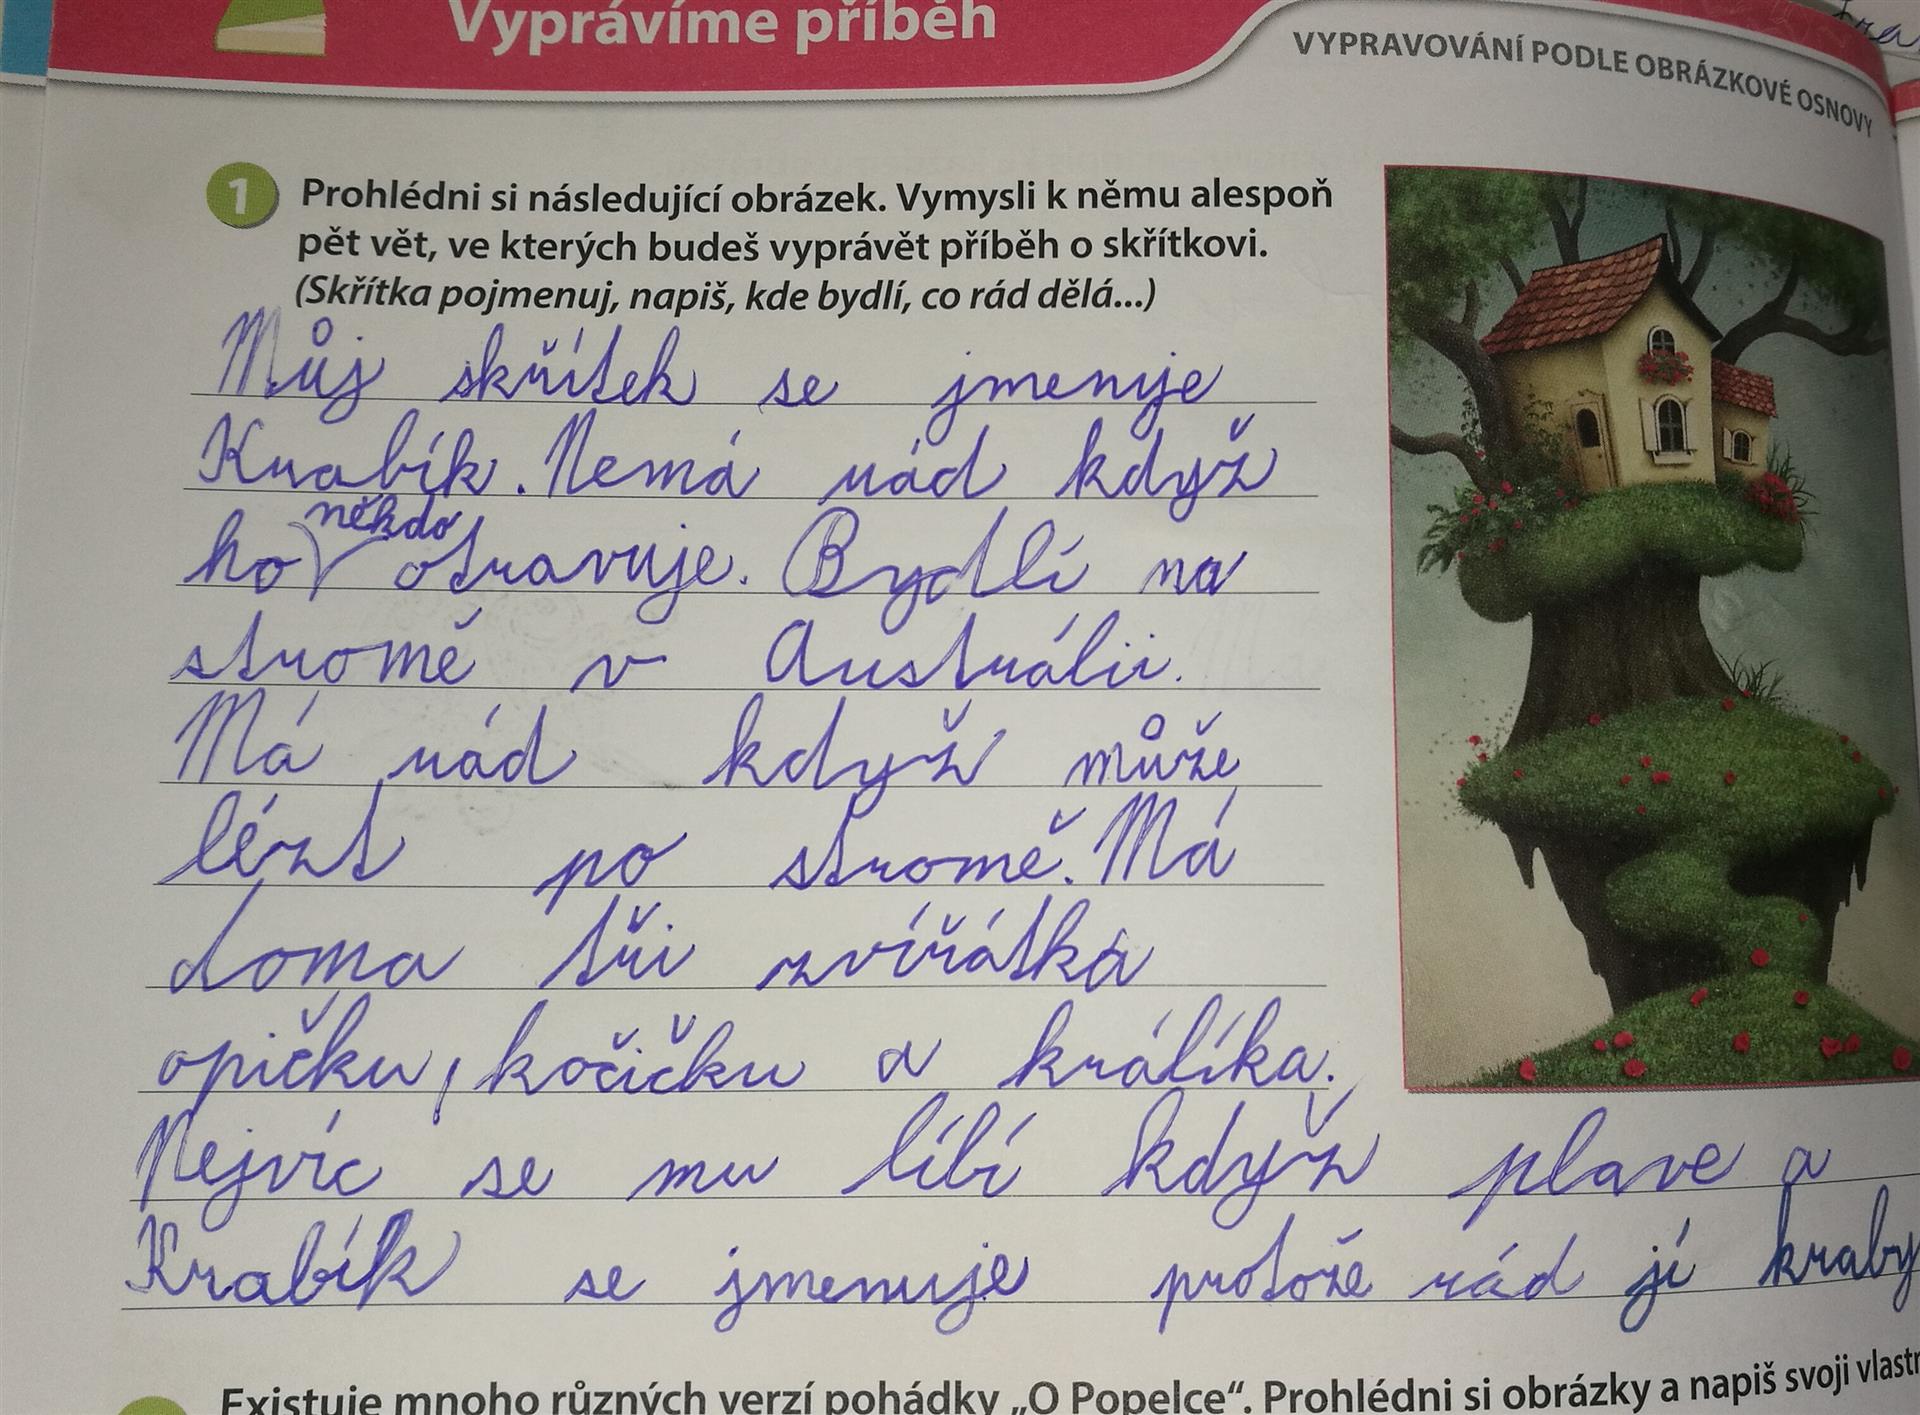 Vyprávíme příběh
VYPRAVOVÁNÍ PODLE OBRÁZKOVÉ OSNOVY
1 Prohlédni si následující obrázek. Vymysli k němu alespoň
pět vět, ve kterých budeš vyprávět příběh o skřítkovi.
(Skřítka pojmenuj, napiš, kde bydlí, co rád dělá...)
Můj skřítek se jmenuje
Krabík. Nemá rád když
ho někdo otravuje. Bydlí na
stromě v Austrálii.
Má rád když může
lézt po stromě. Má
doma tři zvířátka
opičku, kočičku a králíka.
Nejvíc se mu líbí když plave a
Krabík se jmenuje protože rád jí kraby
Existuje mnoho různých verzí pohádky „O Popelce“. Prohlédni si obrázky a napiš svoji